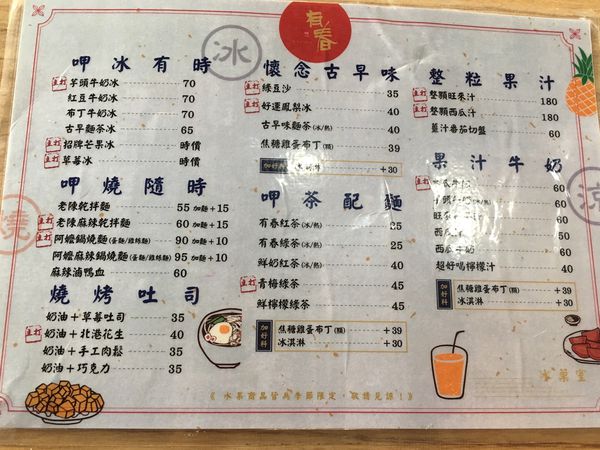 有春
冰
呷冰有時
主打 芋頭牛奶冰 70
紅豆牛奶冰 70
布丁牛奶冰 70
古早麵茶冰 65
主打 招牌芒果冰 時價
主打 草莓冰 時價
呷燒隨時
老陳乾拌麵 55 加麵+15
主打 老陳麻辣乾拌麵 60 加麵+15
主打 阿嬤鍋燒麵(意麵/雞絲麵) 90 加麵+10
阿嬤麻辣鍋燒麵(意麵/雞絲麵) 95 加麵+10
麻辣滷鴨血 60
燒
燒烤吐司
奶油+草莓吐司 35
主打 奶油+北港花生 40
奶油+手工肉鬆 35
奶油+巧克力 35
懷念古早味
主打 綠豆沙 35
主打 好運鳳梨冰 40
古早味麵茶(冰/熱) 40
焦糖雞蛋布丁(顆) 39
加好料 +30
呷茶配麵
有春紅茶(冰/熱) 25
有春綠茶(冰/熱) 25
鮮奶紅茶(冰/熱) 40
主打 青梅綠茶 45
鮮檸檬綠茶 45
加好料 焦糖雞蛋布丁(顆) +39
冰淇淋 +30
整粒果汁
主打 整顆旺來汁 180
主打 整顆西瓜汁 180
薑汁番茄切盤 60
果汁牛奶
主打 木瓜牛奶 60
芋頭牛奶 60
旺來汁 60
西瓜汁 50
西瓜牛奶 60
超好喝檸檬汁 40
涼
加好料 焦糖雞蛋布丁(顆) +39
冰淇淋 +30
水菓室
《水果商品皆為季節限定,敬請見諒!》